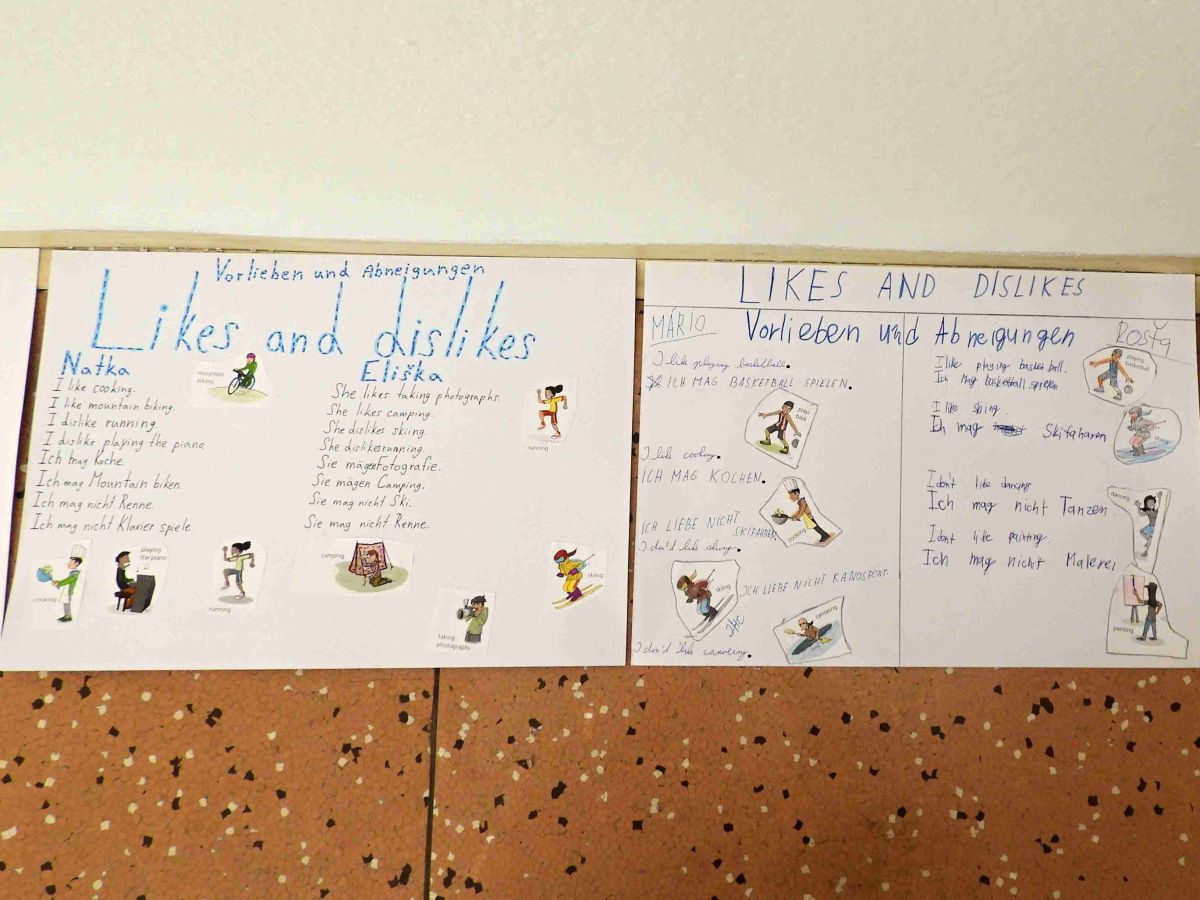 Vorlieben und Abneigungen
Likes and dislikes
Natka
I like cooking.
I like mountain biking.
I dislike running.
I dislike playing the piano
Ich mag Koche.
Ich mag Mountain biken.
Ich mag nicht Renne.
Ich mag nicht Klavier spiele.
mountain
biking
cooking
playing
the piano
running
Eliška
She likes taking photographs.
She likes camping.
She dislikes skiing.
She dislikerunning.
Sie mägenFotografie.
Sie mägen Camping.
Sie mag nicht Ski.
Sie mag nicht Renne.
running
camping
taking
photographs
skiing
LIKES AND DISLIKES
Vorlieben und Abneigungen
MÁRIO
I like playing basketball.
ICH MAG BASKETBALL SPIELEN.
I like cooking.
ICH MAG KOCHEN.
cooking
ICH LIEBE NICHT
SKIFAHREN.
I don'd like skiing.
skiing
ICH LIEBE NICHT KANOSPORT.
canoeing
I don'd like canoeing.
Rosťa
I like playing basket ball.
Ich mag basketball spielen
playing
basketball
I like skiing.
Ich mag Skifaharen
I don't like dancing
Ich mag nicht Tanzen.
dancing
I dont like painting.
Ich mag nicht Malerei
painting